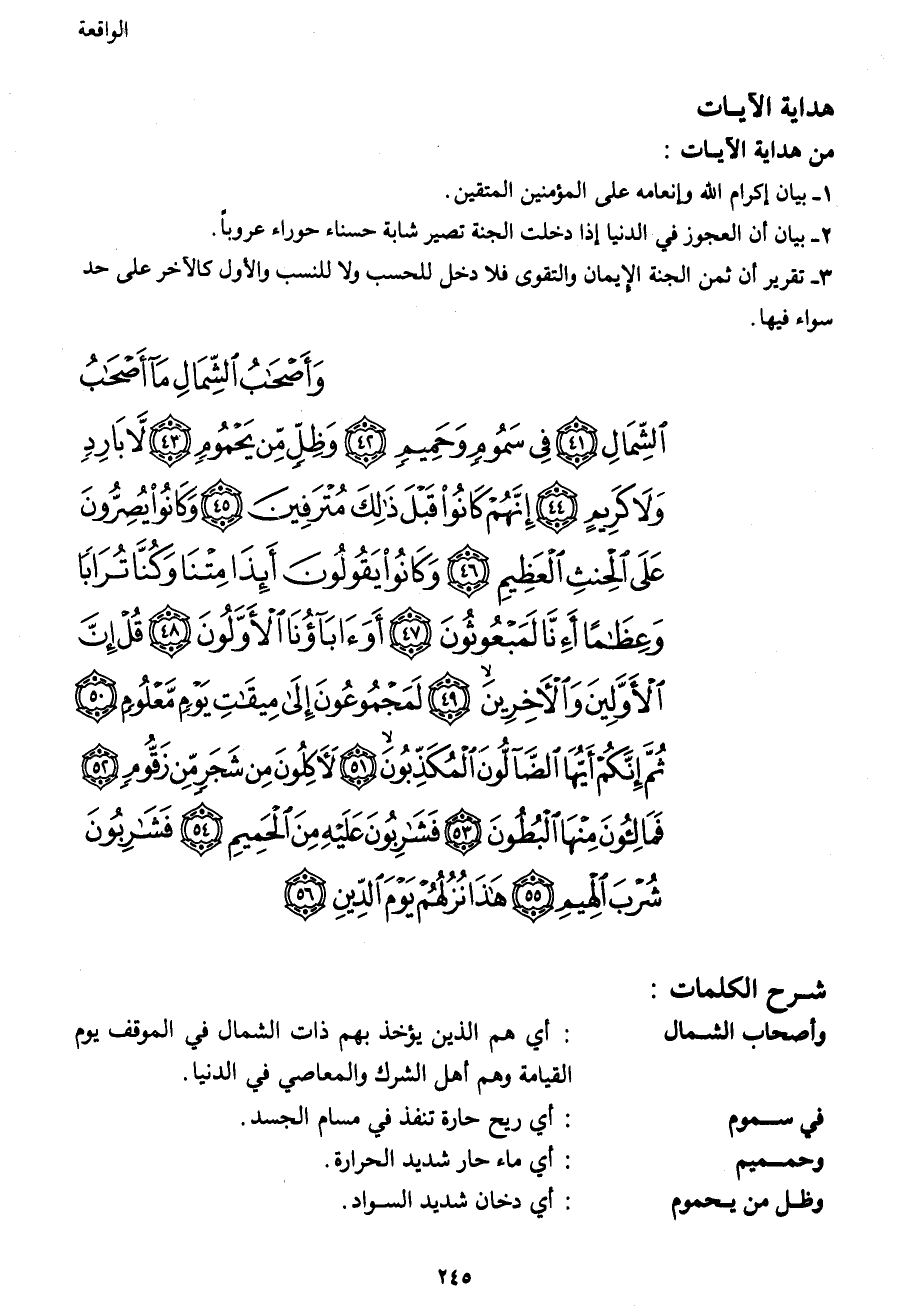 الواقعة
هداية الآيـات
من هداية الآيـات :
١ـ بيان إكرام الله وإنعامه على المؤمنين المتقين.
٢ـ بيان أن العجوز في الدنيا إذا دخلت الجنة تصير شابة حسناء حوراء عروباً.
٣ـ تقرير أن ثمن الجنة الإيمان والتقوى فلا دخل للحسب ولا للنسب والأول كالآخر على حد
سواء فيها.
وَأَصْحَٰبُ ٱلشِّمَالِ مَآ أَصْحَٰبُ
ٱلشِّمَالِ ﴿٤١﴾ فِى سَمُومٍ وَحَمِيمٍ ﴿٤٢﴾ وَظِلٍّ مِّن يَحْمُومٍ ﴿٤٣﴾ لَّا بَارِدٍ
وَلَا كَرِيمٍ ﴿٤٤﴾ إِنَّهُمْ كَانُوا۟ قَبْلَ ذَٰلِكَ مُتْرَفِينَ ﴿٤٥﴾ وَكَانُوا۟ يُصِرُّونَ
عَلَى ٱلْحِنثِ ٱلْعَظِيمِ ﴿٤٦﴾ وَكَانُوا۟ يَقُولُونَ أَئِذَا مِتْنَا وَكُنَّا تُرَابًا
وَعِظَٰمًا أَءِنَّا لَمَبْعُوثُونَ ﴿٤٧﴾ أَوَءَابَآؤُنَا ٱلْأَوَّلُونَ ﴿٤٨﴾ قُلْ إِنَّ
ٱلْأَوَّلِينَ وَٱلْءَاخِرِينَ ۙ ﴿٤٩﴾ لَمَجْمُوعُونَ إِلَىٰ مِيقَٰتِ يَوْمٍ مَّعْلُومٍ ﴿٥٠﴾
ثُمَّ إِنَّكُمْ أَيُّهَا ٱلضَّآلُّونَ ٱلْمُكَذِّبُونَ ۙ ﴿٥١﴾ لَءَاكِلُونَ مِن شَجَرٍ مِّن زَقُّومٍ ﴿٥٢﴾
فَمَالِـُٔونَ مِنْهَا ٱلْبُطُونَ ﴿٥٣﴾ فَشَٰرِبُونَ عَلَيْهِ مِنَ ٱلْحَمِيمِ ﴿٥٤﴾ فَشَٰرِبُونَ
شُرْبَ ٱلْهِيمِ ﴿٥٥﴾ هَٰذَا نُزُلُهُمْ يَوْمَ ٱلدِّينِ ﴿٥٦﴾
شـرح الكلمات :
وأصحاب الشـمال : أي هم الذين يؤخذ بهم ذات الشمال في الموقف يوم
القيامة وهم أهل الشرك والمعاصي في الدنيا.
في سـموم : أي ريح حارة تنفذ في مسام الجسد.
وحمـميم : أي ماء حار شديد الحرارة.
وظـل من يـحموم : أي دخان شديد السـواد.
٢٤٥